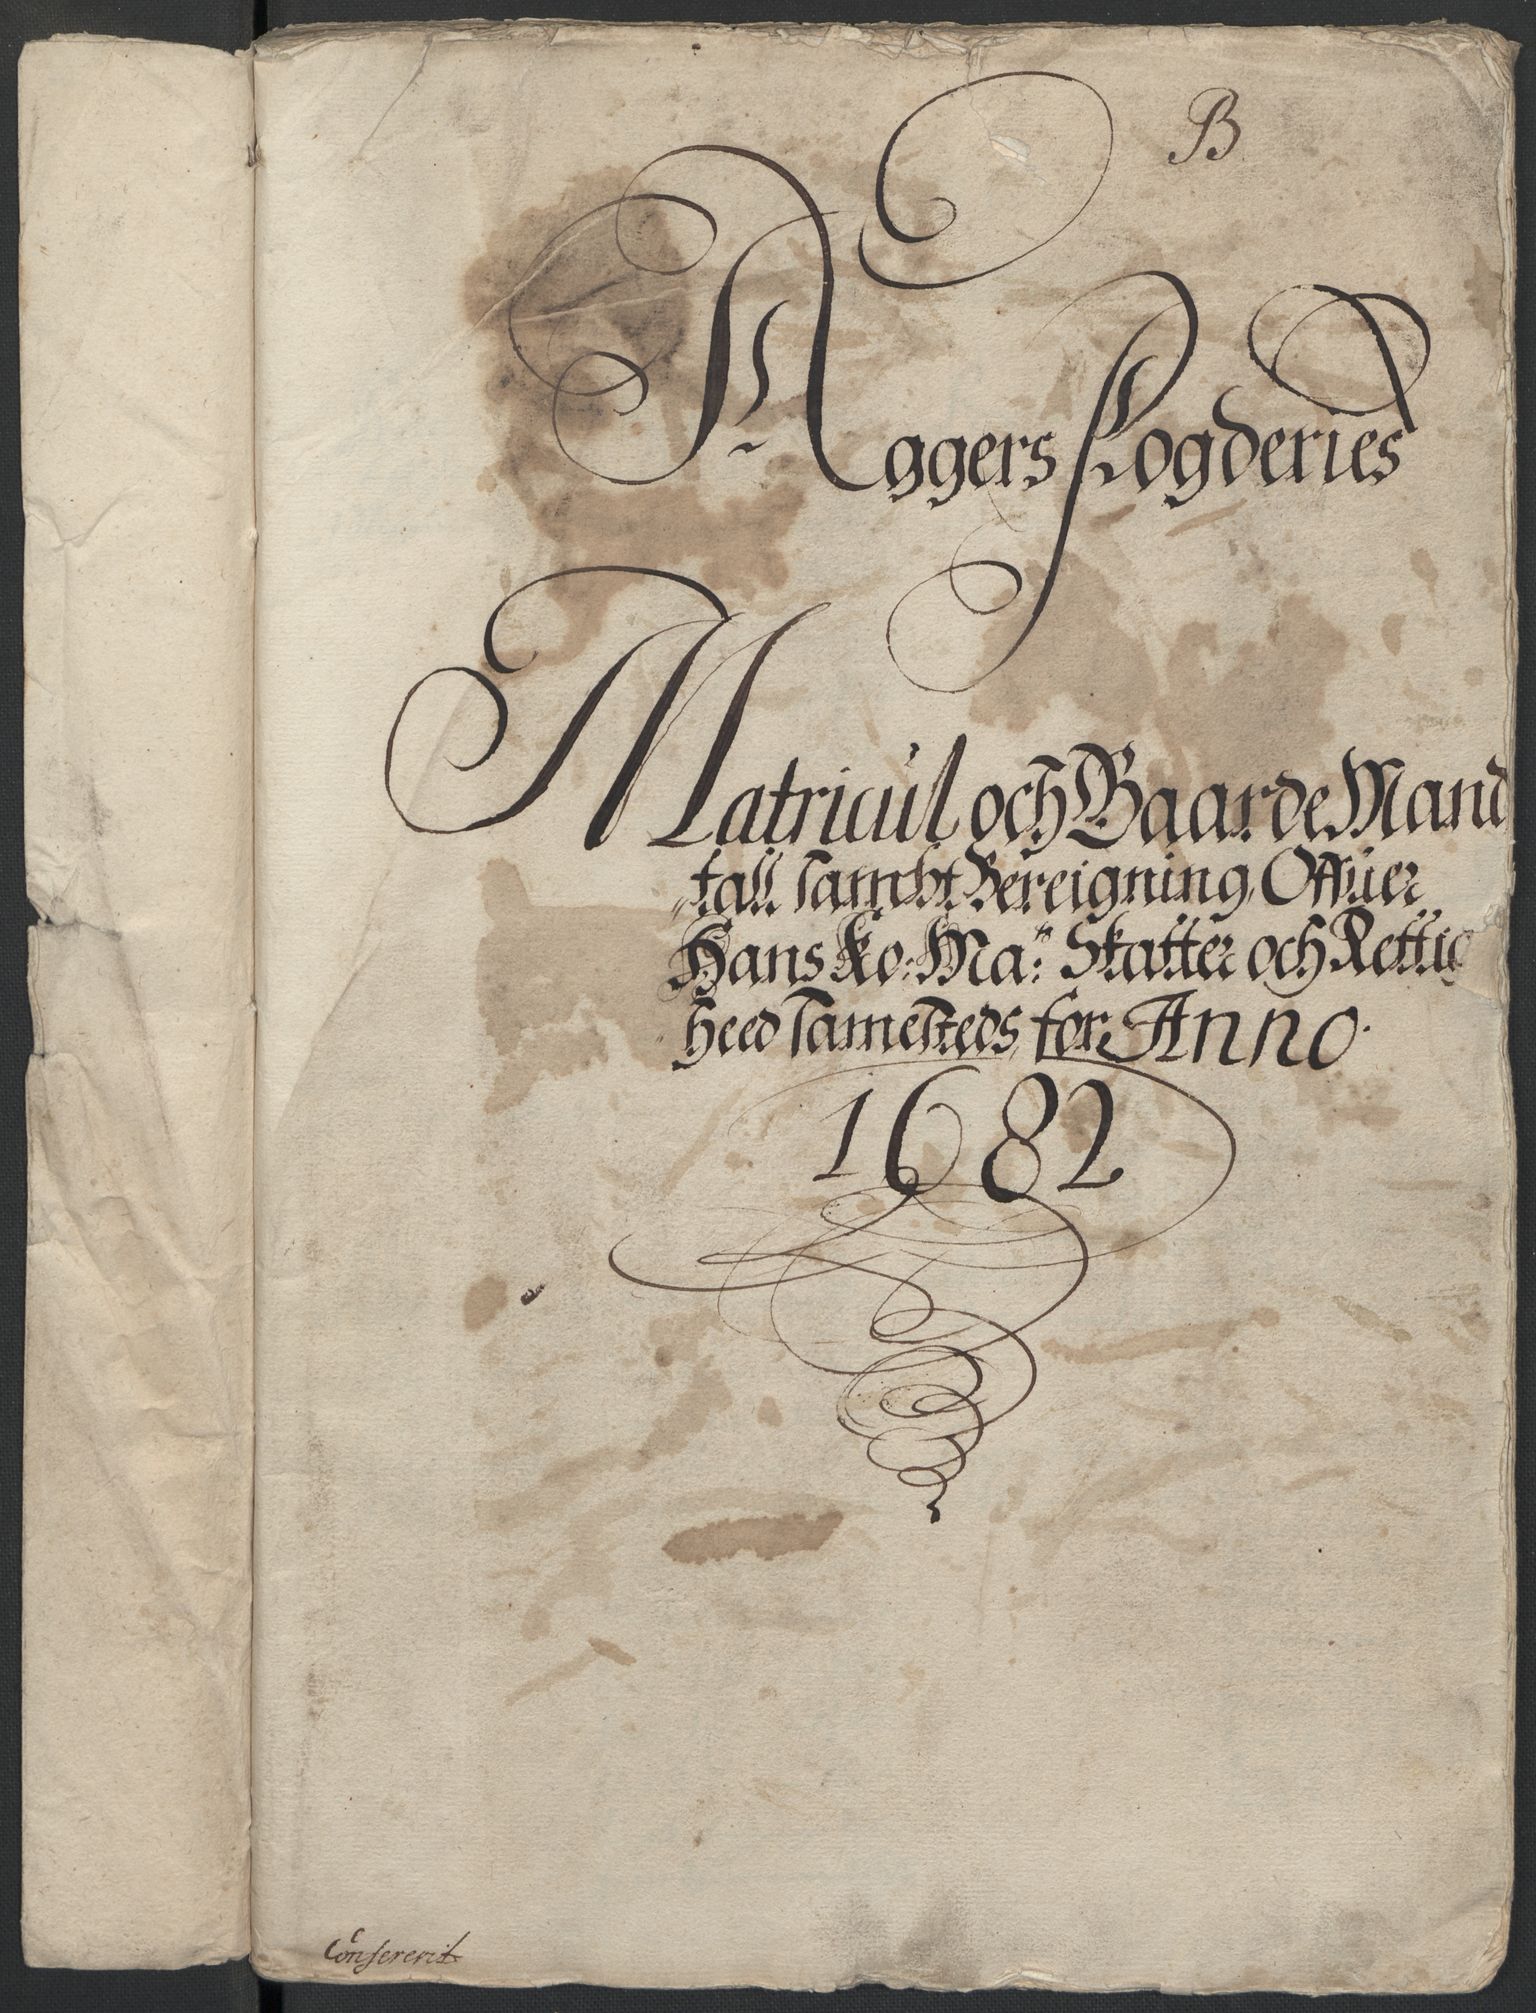 B
Aggers Fogderies
Matricul och Baarde Mand
tall sambt Bereigning Offuer
Hans Ko: Ma: Skatter och Rettig
heed samesteds for Anno
1682
Confererit